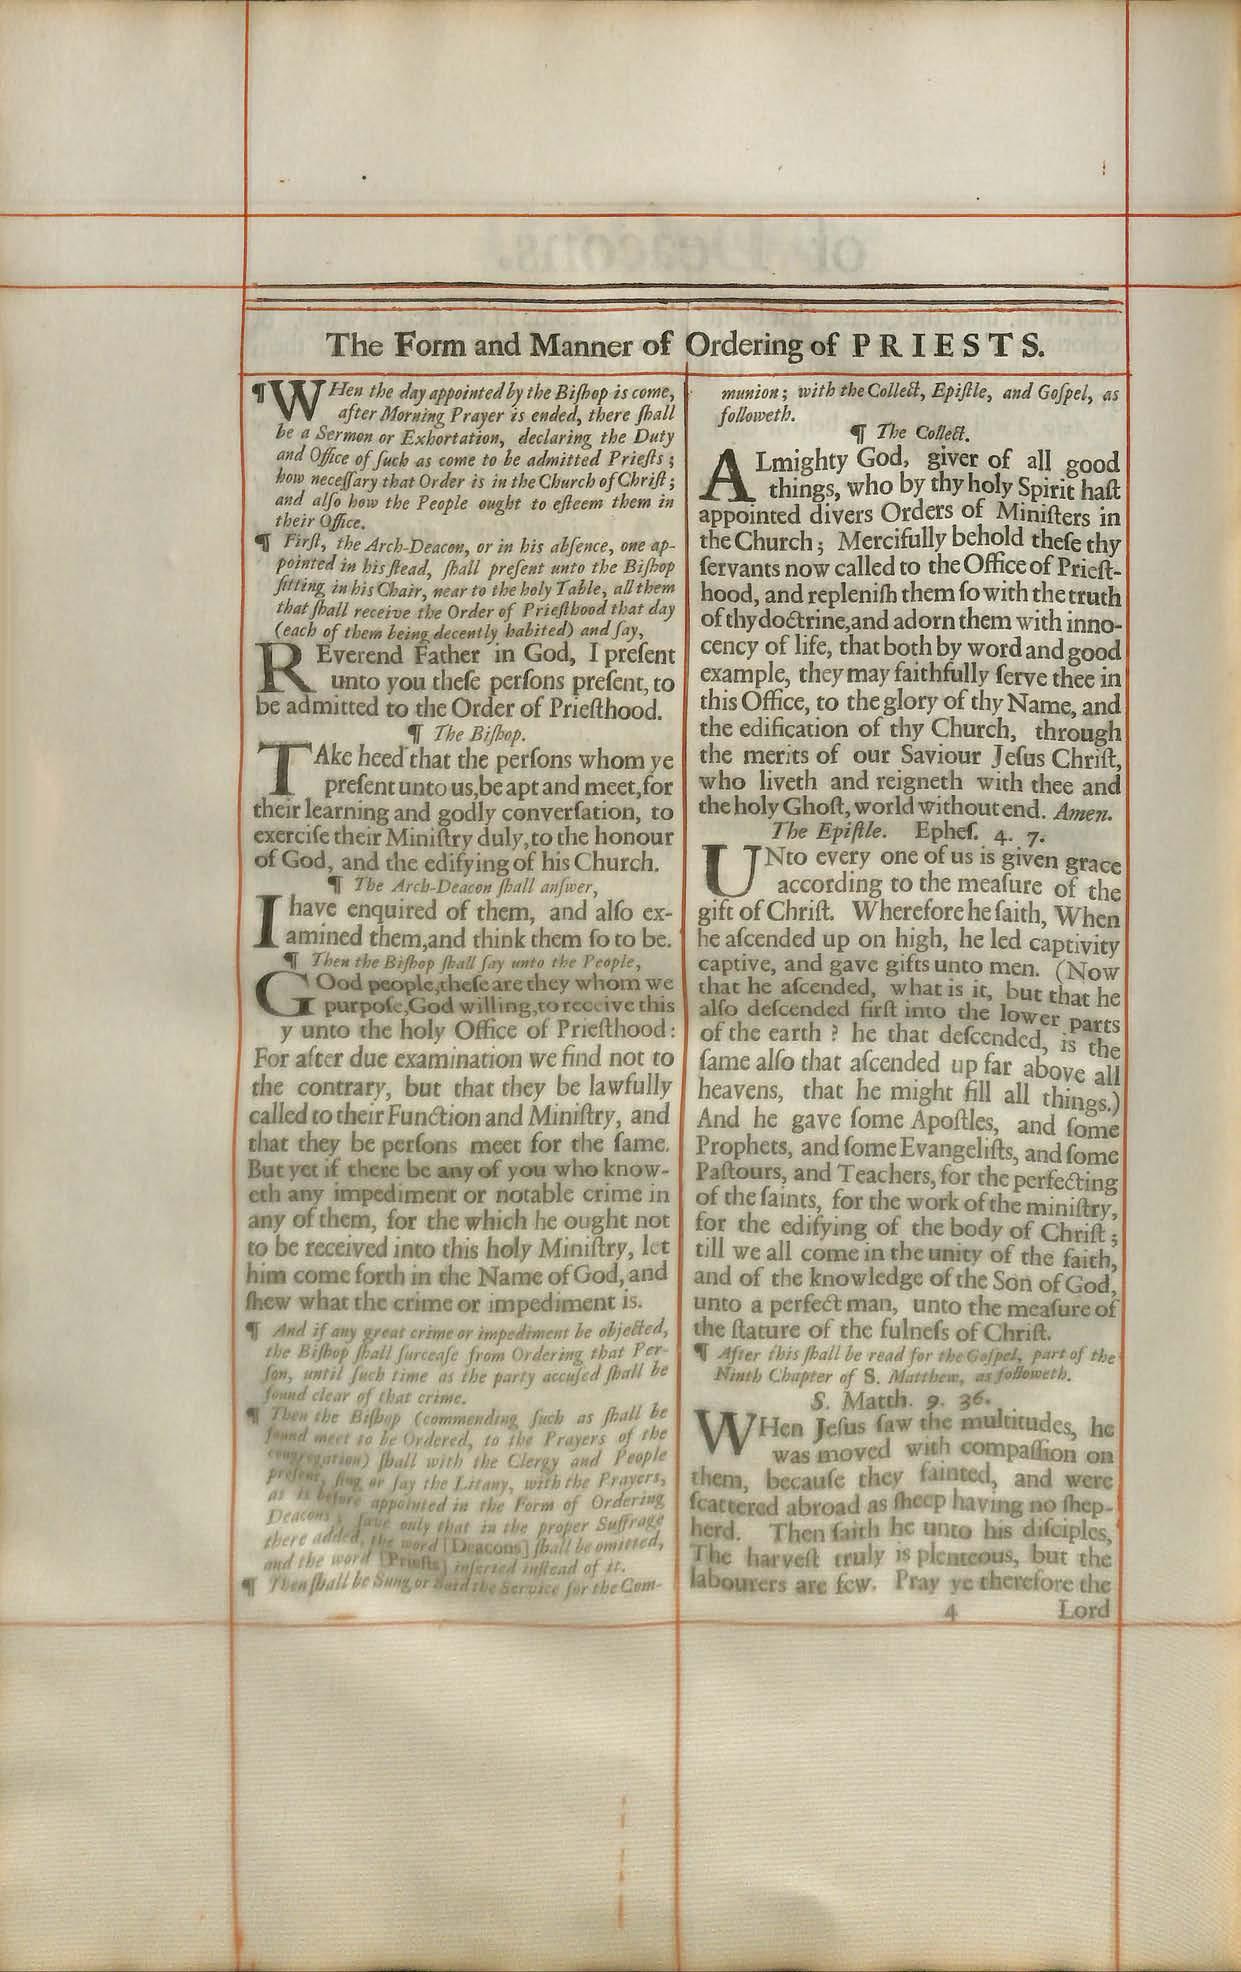 The Form and Manner of Ordering of PRIESTS.
¶ WHen the day appointed by the Biſhop is come,
after Morning Prayer is ended, there ſhall
be a Sermon or Exhortation, declaring the Duty
and Office of ſuch as come to be admitted Prieſts;
how neceſſary that Order is in the Church of Chriſt;
and alſo how the People ought to eſteem them in
their Office.
¶ Firſt, the Arch-Deacon, or in his abſence, one ap-
pointed in his ſtead, ſhall preſent unto the Biſhop
ſitting in his Chair, near to the holy Table, all them
that ſhall receive the Order of Prieſthood that day
(each of them being decently habited) and ſay,
REverend Father in God, I preſent
unto you theſe perſons preſent, to
be admitted to the Order of Prieſthood.
¶ The Biſhop.
TAke heed that the perſons whom ye
preſent unto us, be apt and meet, for
their learning and godly converſation, to
exerciſe their Miniſtry duly, to the honour
of God, and the edifying of his Church.
¶ The Arch-Deacon ſhall anſwer,
I have enquired of them, and alſo ex-
amined them, and think them ſo to be.
¶ Then the Biſhop ſhall ſay unto the People,
GOod people, theſe are they whom we
purpoſe, God willing, to receive this
y unto the holy Office of Prieſthood:
For after due examination we find not to
the contrary, but that they be lawfully
called to their Function and Miniſtry, and
that they be perſons meet for the ſame.
But yet if there be any of you who know-
eth any impediment or notable crime in
any of them, for the which he ought not
to be received into this holy Miniſtry, let
him come forth in the Name of God, and
ſhew what the crime or impediment is.
¶ And if any great crime or impediment be objected,
the Biſhop ſhall ſurceaſe from Ordering that Per-
ſon, until ſuch time as the party accuſed ſhall be
found clear of that crime.
¶ Then the Biſhop (commending ſuch as ſhall be
found meet to be Ordered, to the Prayers of the
congregation) ſhall with the Clergy and People
preſent, ſing or ſay the Litany, with the Prayers,
as is before appointed in the Form of Ordering
Deacons, ſave only that in the proper Suffrage
there added, the word [Deacons] ſhall be omitted,
and the word [Prieſts] inſerted inſtead of it.
¶ Then ſhall be Sung or Said the Service for the Com-
munion; with the Collect, Epiſtle, and Goſpel, as
followeth.
¶ The Collect.
ALmighty God, giver of all good
things, who by thy holy Spirit haſt
appointed divers Orders of Miniſters in
the Church; Mercifully behold theſe thy
ſervants now called to the Office of Prieſt-
hood, and repleniſh them ſo with the truth
of thy doctrine, and adorn them with inno-
cency of life, that both by word and good
example, they may faithfully ſerve thee in
this Office, to the glory of thy Name, and
the edification of thy Church, through
the merits of our Saviour Jeſus Chriſt,
who liveth and reigneth with thee and
the holy Ghoſt, world without end. Amen.
The Epiſtle. Epheſ. 4. 7.
UNto every one of us is given grace
according to the meaſure of the
gift of Chriſt. Wherefore he ſaith, When
he aſcended up on high, he led captivity
captive, and gave gifts unto men. (Now
that he aſcended, what is it, but that he
alſo deſcended firſt into the lower parts
of the earth? he that deſcended, is the
ſame alſo that aſcended up far above all
heavens, that he might fill all things.)
And he gave ſome Apoſtles, and ſome
Prophets, and ſome Evangeliſts, and ſome
Paſtours, and Teachers, for the perfecting
of the ſaints, for the work of the miniſtry,
for the edifying of the body of Chriſt;
till we all come in the unity of the faith,
and of the knowledge of the Son of God,
unto a perfect man, unto the meaſure of
the ſtature of the fulneſs of Chriſt.
¶ After this ſhall be read for the Goſpel, part of the
Ninth Chapter of S. Matthew, as followeth.
S. Matth. 9. 36.
WHen Jeſus ſaw the multitudes, he
was moved with compaſſion on
them, becauſe they fainted, and were
ſcattered abroad as ſheep having no ſhep-
herd. Then ſaith he unto his diſciples,
The harveſt truly is plenteous, but the
labourers are few. Pray ye therefore the
4 Lord